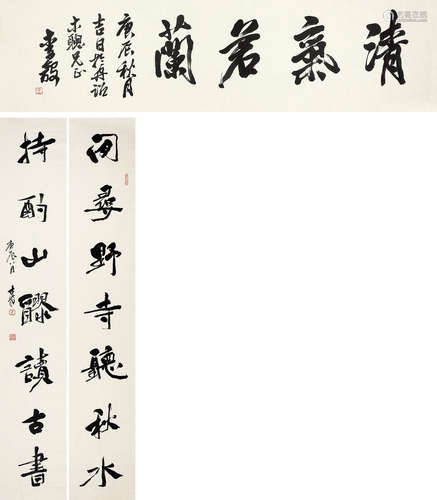 清氣若蘭
庚辰秋月
吉日於丹詔
兄正
閑尋野寺聽秋水
持酌山醪讀古書
庚辰八月